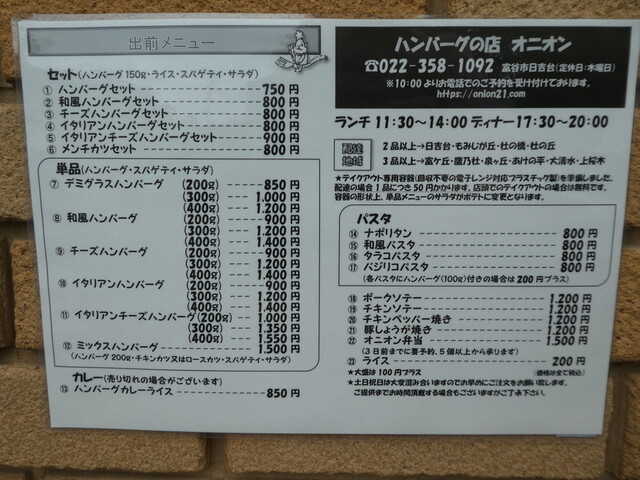 出前メニュー
セット(ハンバーグ150g・ライス・スパゲテイ・サラダ)
① ハンバーグセット 750円
② 和風ハンバーグセット 800円
③ チーズハンバーグセット 800円
④ イタリアンハンバーグセット 800円
⑤ イタリアンチーズハンバーグセット 900円
⑥ メンチカツセット 800円
単品(ハンバーグ・スパゲテイ・サラダ)
⑦ デミグラスハンバーグ (200g) 850円
(300g) 1.000円
(400g) 1.200円
⑧ 和風ハンバーグ (200g) 900円
(300g) 1.200円
(400g) 1.400円
⑨ チーズハンバーグ (200g) 900円
(300g) 1.200円
(400g) 1.400円
⑩ イタリアンハンバーグ (200g) 900円
(300g) 1.200円
(400g) 1.400円
⑪ イタリアンチーズハンバーグ(200g) 1.000円
(300g) 1.350円
(400g) 1.550円
⑫ ミックスハンバーグ 1.500円
(ハンバーグ 200g・チキンカツ又はロースカツ・スパゲテイ・サラダ)
カレー(売り切れの場合がございます)
⑬ ハンバーグカレーライス 850円
ハンバーグの店 オニオン
☎022-358-1092 富谷市日吉台(定休日:木曜日)
※10:00よりお電話でのご予約を受け付けております。
https://onion21.com
ランチ 11:30~14:00 ディナー17:30~20:00
配達地域
2品以上→日吉台・もみじが丘・杜の橋・杜の丘
3品以上→富ケ丘・鷹乃杜・泉ヶ丘・あけの平・大清水・上桜木
★テイクアウト専用容器(回収不要の電子レンジ対応プラスチック製)を準備しました。
配達の場合1品につき50円かかります。店頭でのテイクアウトの場合は無料です。
容器の形状上、単品メニューのサラダがポテトに変更となります。
パスタ
⑭ ナポリタン 800円
⑮ 和風パスタ 800円
⑯ タラコパスタ 800円
⑰ バジリコパスタ 800円
(各パスタにハンバーグ(100g)付きの場合は200円プラス)
⑱ ポークソテー 1.200円
⑲ チキンソテー 1.200円
⑳ チキンペッパー焼き 1.200円
㉑ 豚しょうが焼き 1.200円
㉒ オニオン弁当 1.500円
(3日前までに要予約、5個以上から承ります)
㉓ ライス 200円
★大盛は100円プラス (価格は全て税込)
★土日祝日は大変混み合いますのでお早めにご注文をお願い致します。
ご提供までお時間頂戴する場合もございますがご了承下さい。